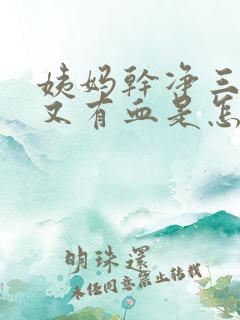 姨妈幹净三
又有血是怎
明珠還
未经同意禁止转载